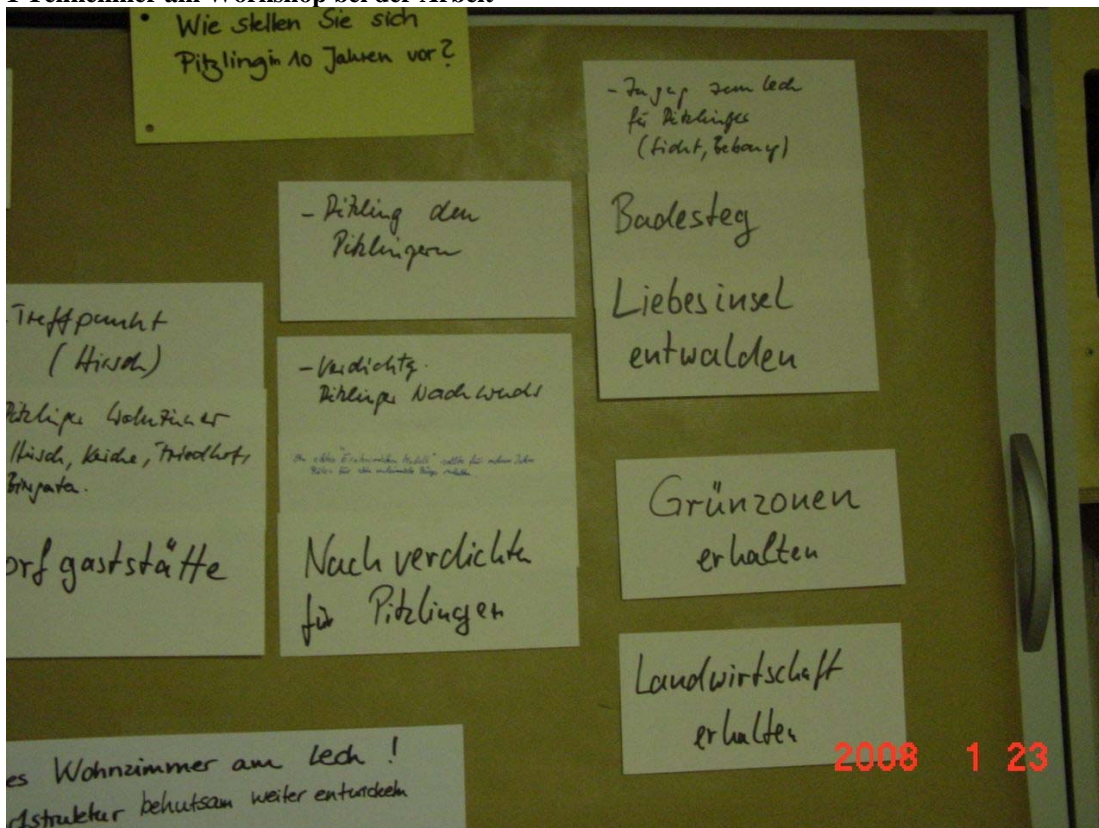 1 Teilnehmer am Workshop bei der Arbeit
Wie stellen Sie sich
Pitzling in 10 Jahren vor?
- Zugang zum Lech
für Pitzlinger
(Sicht, Bebauung)
Badesteg
Liebesinsel
entwalden
- Pitzling den
Pitzlingern
Treffpunkt
(Hirsch)
Pitzlinger Wohnzimmer
Hirsch, Kirche, Friedhof,
Biergarten.
orfgaststätte
- Verdichtg.
Pitzlinger Nachwuchs
Nachverdichten
für Pitzlinger
Grünzonen
erhalten
Landwirtschaft
erhalten
es Wohnzimmer am Lech!
struktur behutsam weiter entwickeln
2008 1 23